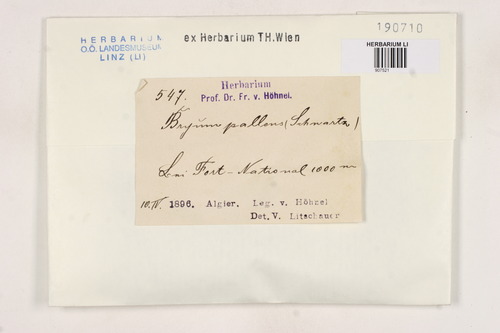 HERBARIUM
O.Ö. LANDESMUSEUM
LINZ (LI)
ex Herbarium TH.Wien
190710
HERBARIUM LI
907521
547.
Herbarium
Prof. Dr. Fr. v. Höhnel.
Bryum pallens (Schwartz)
Bei Fort-National 1000 m
10.IV. 1896. Algier. Leg. v. Höhnel
Det. V. Litschauer